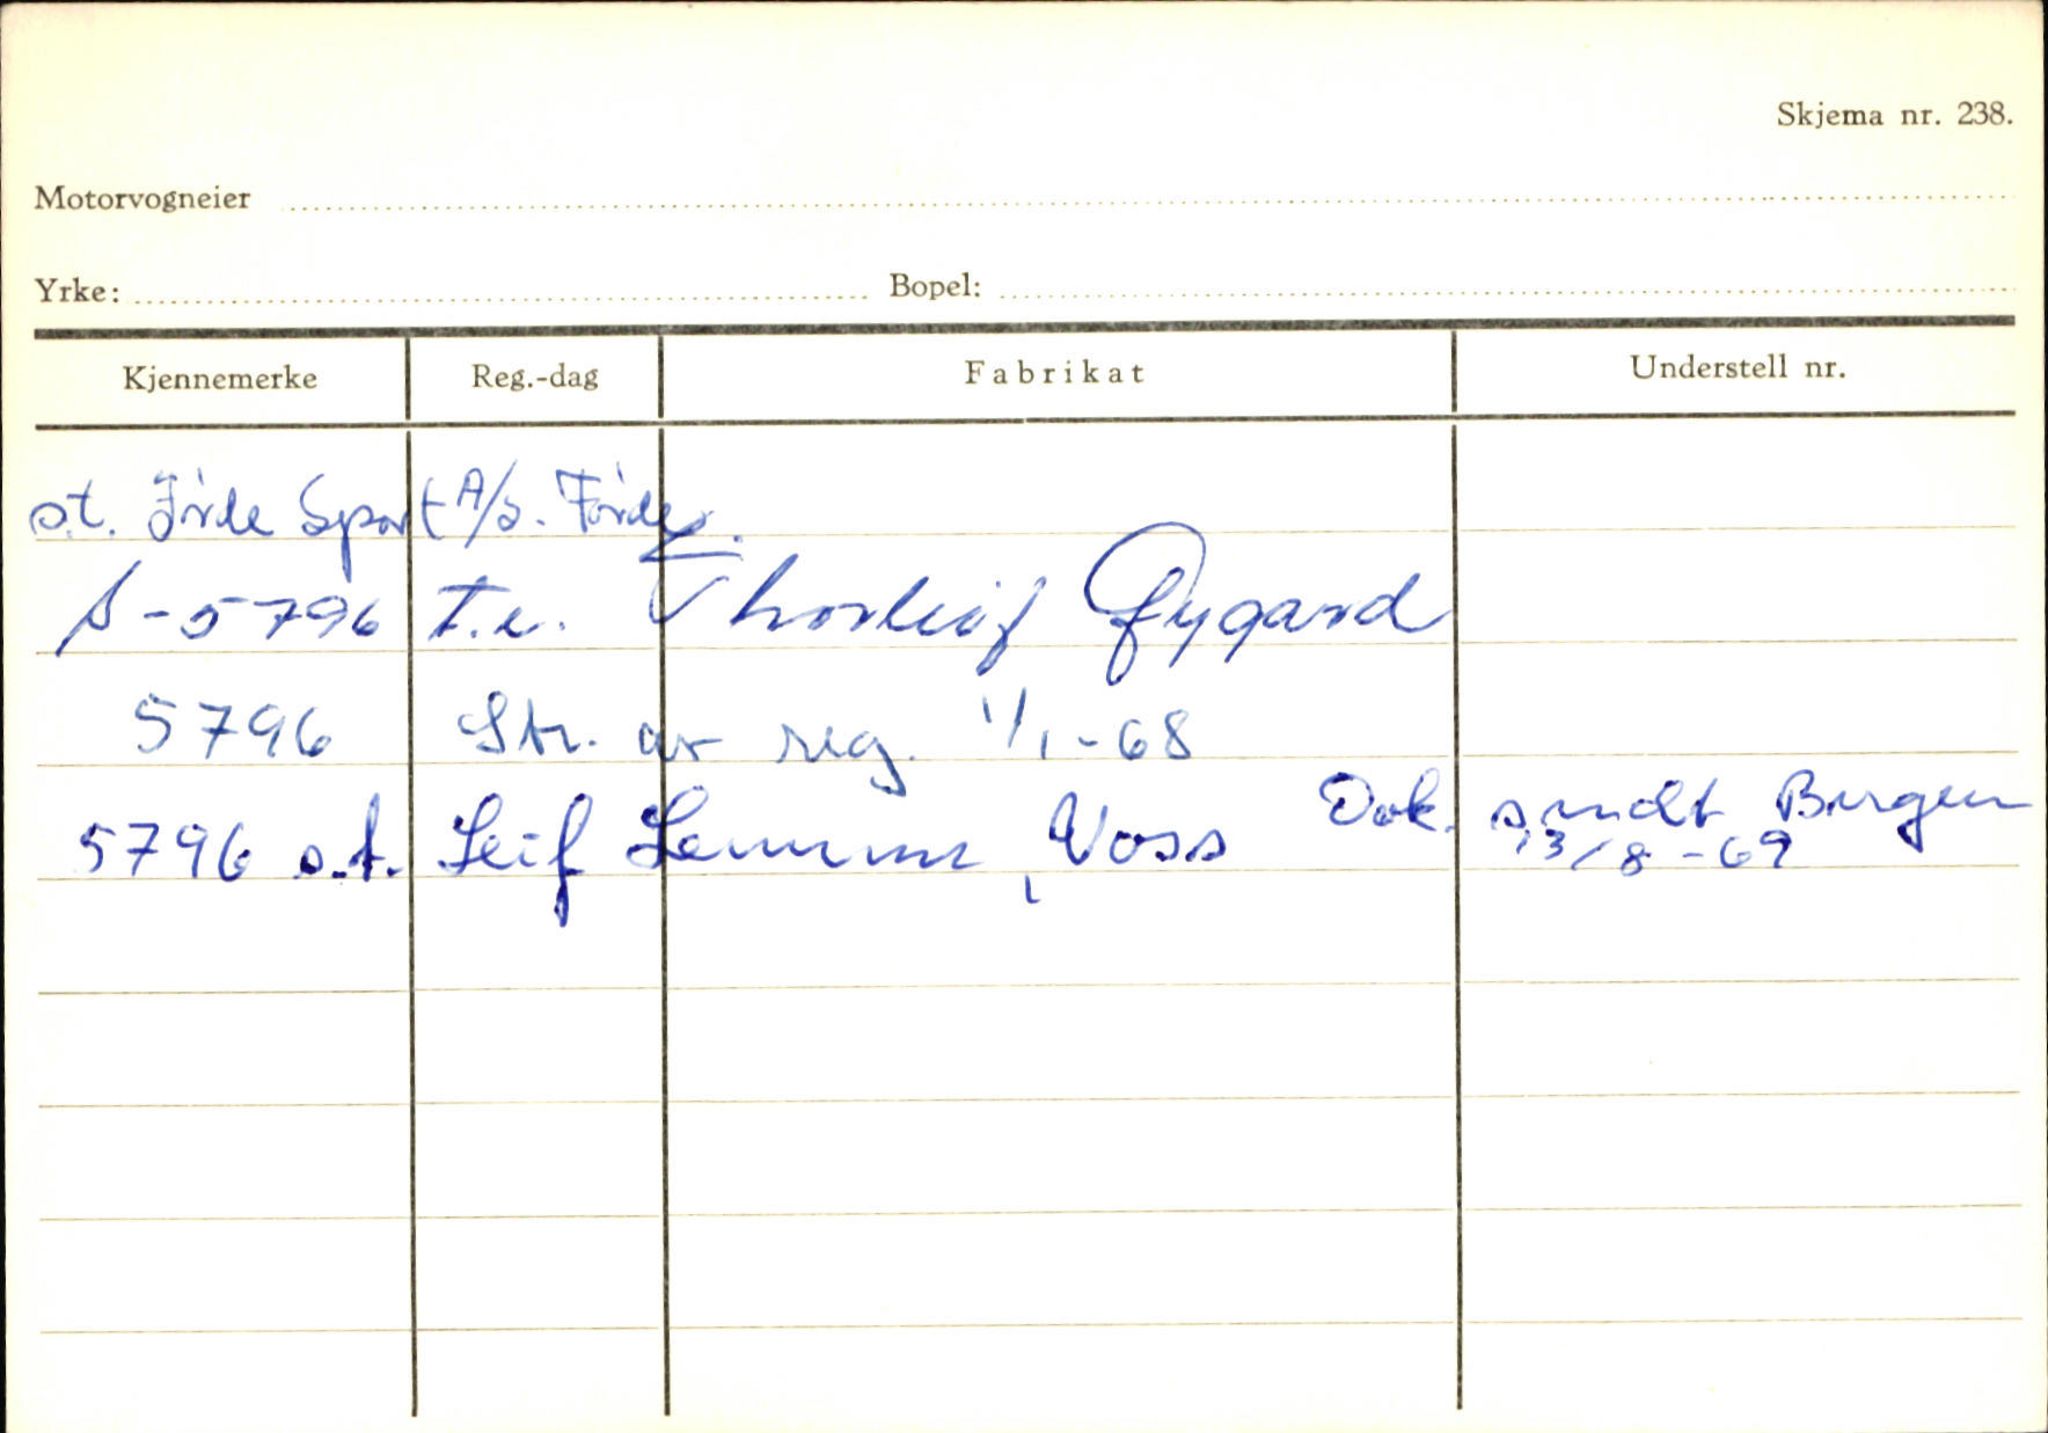 Skjema nr. 238.
Motorvogneier
Yrke: Bopel:
Kjennemerke Reg.-dag Fabrikat Understell nr.
s.t. Førde Sport A/S. Førde.
S-5796 T.e. Thorleif Øygard
5796 Str. av reg. 1/1-68
5796 s.t. Leif , Voss Dok. sendt Bergen
13/8-69